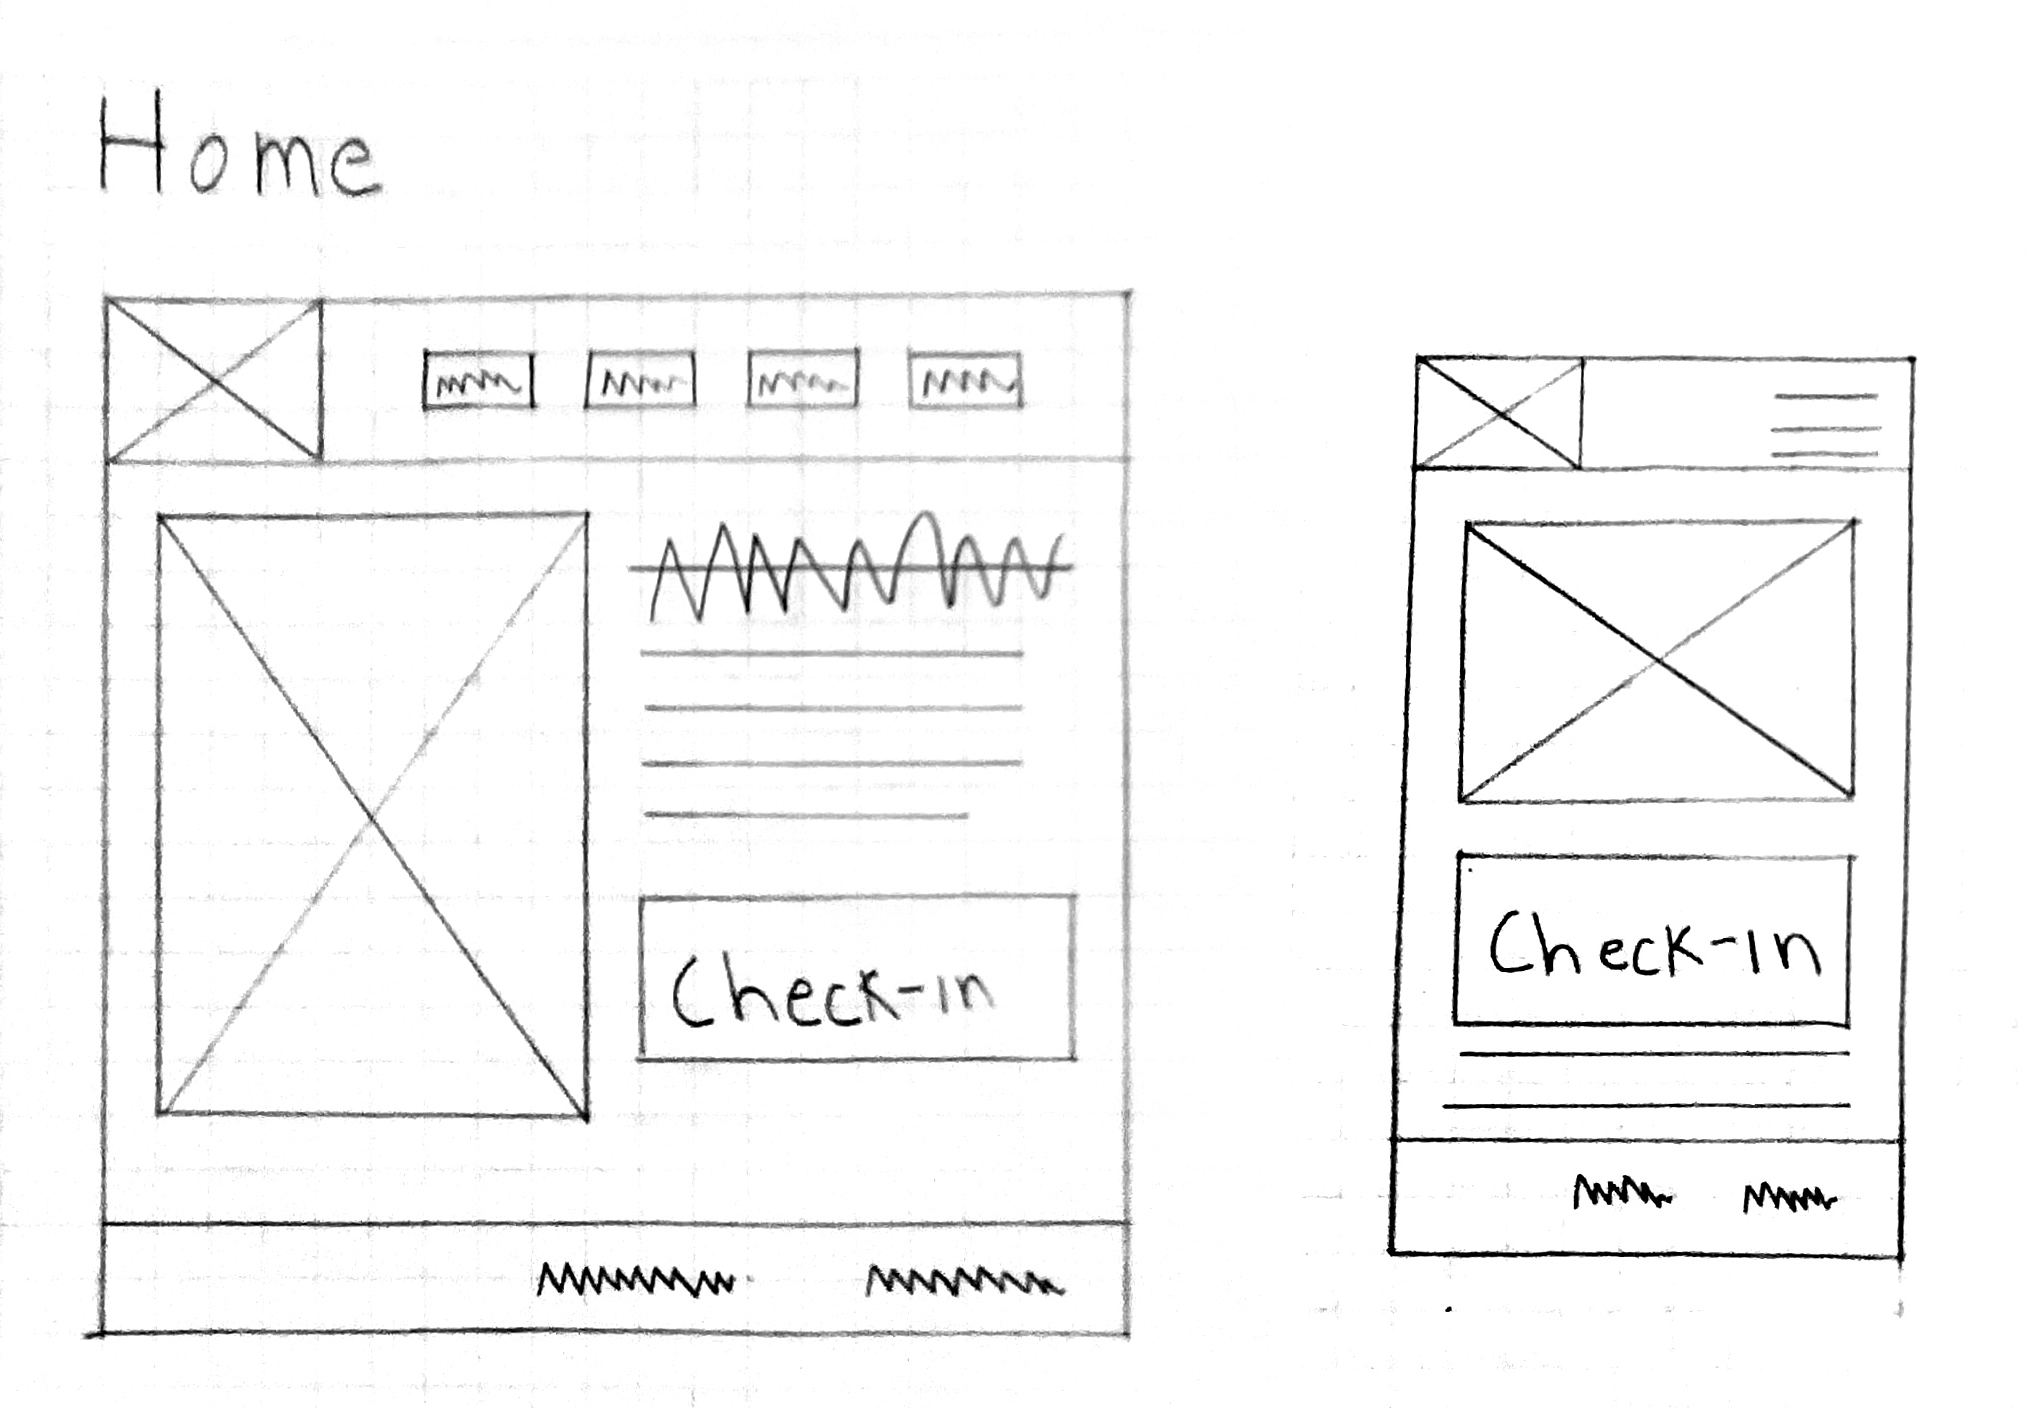 Home
Check-in
Check-in